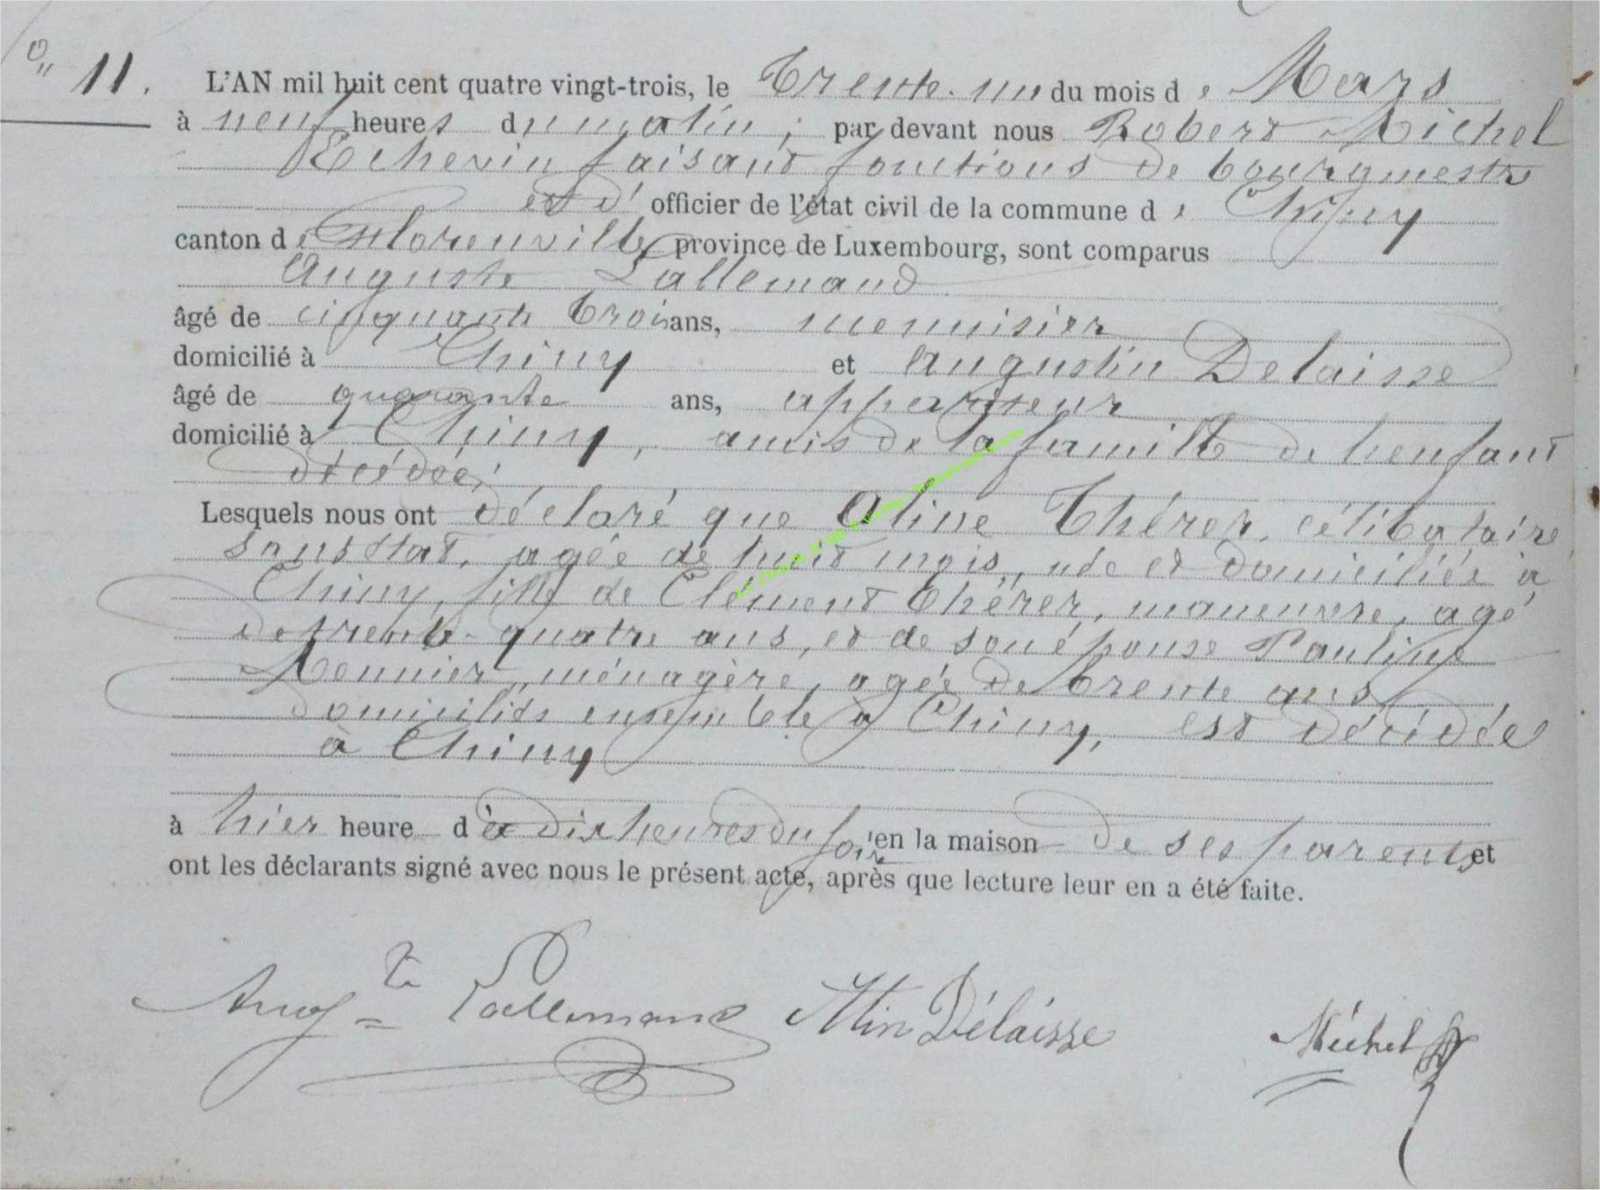 N° 11.
L'AN mil huit cent quatre vingt-trois, le trente-un du mois de Mars
à neuf heures du matin, par devant nous Robert Michel
Echevin faisant fonctions de bourgmestre
et d' officier de l'état civil de la commune de Chiny
canton de Florenville province de Luxembourg, sont comparus
Auguste Lallemand
âgé de cinquante trois ans, menuisier
domicilié à Chiny et Augustin Delaisse
âgé de quarante ans, appariteur
domicilié à Chiny, amis de la famille de l'enfant
décédée,
Lesquels nous ont déclaré que Aline Thérer, célibataire,
sans état, agée de huit mois, née et domiciliée à
Chiny, fille de Clément Thérer, manœuvre, agé
de trente-quatre ans, et de son épouse Pauline
Meunier, ménagère, agée de trente ans
domiciliés ensemble à Chiny, est décédée
à Chiny
à hier heure d à dix heures du soir en la maison de ses parents et
ont les déclarants signé avec nous le présent acte, après que lecture leur en a été faite.
Augte Lallemand Atin Délaisse Michel R